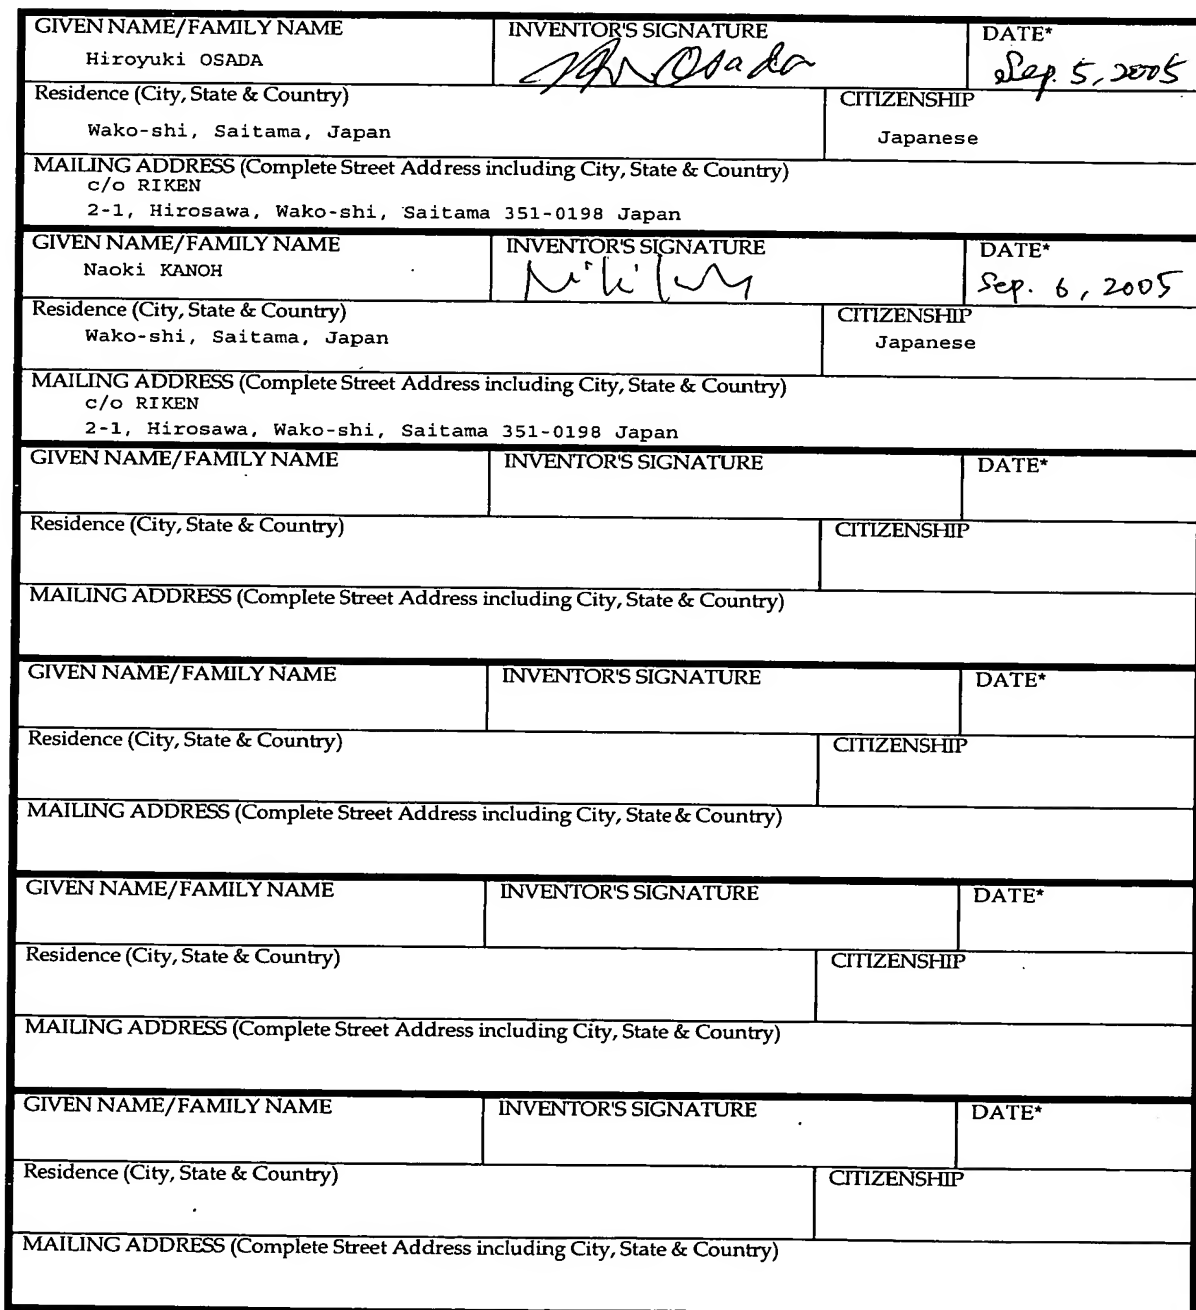 GIVEN NAME/FAMILY NAME INVENTOR'S SIGNATURE DATE*
Hiroyuki OSADA Osada Sep. 5, 2005
Residence (City, State & Country) CITIZENSHIP
Wako-shi, Saitama, Japan Japanese
MAILING ADDRESS (Complete Street Address including City, State & Country)
c/o RIKEN
2-1, Hirosawa, Wako-shi, Saitama 351-0198 Japan
GIVEN NAME/FAMILY NAME INVENTOR'S SIGNATURE DATE*
Naoki KANOH Sep. 6, 2005
Residence (City, State & Country) CITIZENSHIP
Wako-shi, Saitama, Japan Japanese
MAILING ADDRESS (Complete Street Address including City, State & Country)
c/o RIKEN
2-1, Hirosawa, Wako-shi, Saitama 351-0198 Japan
GIVEN NAME/FAMILY NAME INVENTOR'S SIGNATURE DATE*
Residence (City, State & Country) CITIZENSHIP
MAILING ADDRESS (Complete Street Address including City, State & Country)
GIVEN NAME/FAMILY NAME INVENTOR'S SIGNATURE DATE*
Residence (City, State & Country) CITIZENSHIP
MAILING ADDRESS (Complete Street Address including City, State & Country)
GIVEN NAME/FAMILY NAME INVENTOR'S SIGNATURE DATE*
Residence (City, State & Country) CITIZENSHIP
MAILING ADDRESS (Complete Street Address including City, State & Country)
GIVEN NAME/FAMILY NAME INVENTOR'S SIGNATURE DATE*
Residence (City, State & Country) CITIZENSHIP
MAILING ADDRESS (Complete Street Address including City, State & Country)